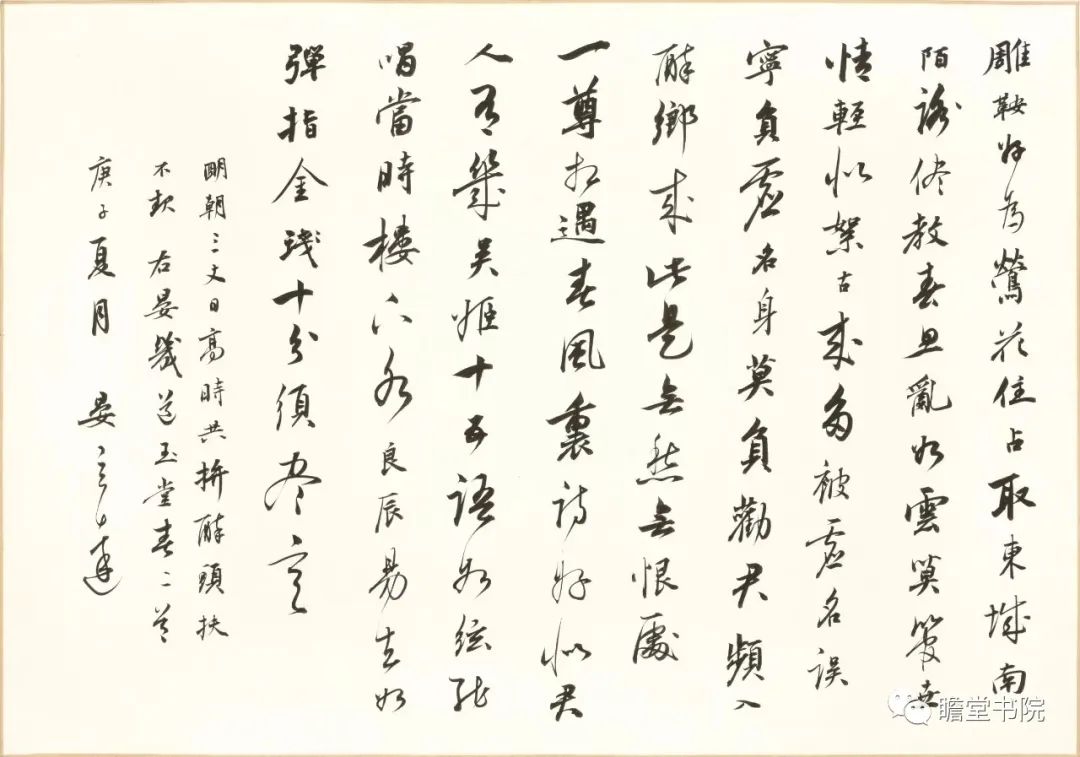 雕鞍好為鶯花住占取東城南
陌路侭教春思亂如雲莫管世
情輕似絮古來多被虛名誤
寧負虛名身莫負勸君頻入
醉鄉來此是無愁無恨處
一尊相遇春風裏詩好似君
人有幾吳姬十五語如絃能
唱當時樓下水良辰易去如
彈指金琖十分須尽意
明朝三丈日高時共拚醉頭扶
不起 右晏幾道玉堂春二首
庚子夏月 晏
瞻堂书院